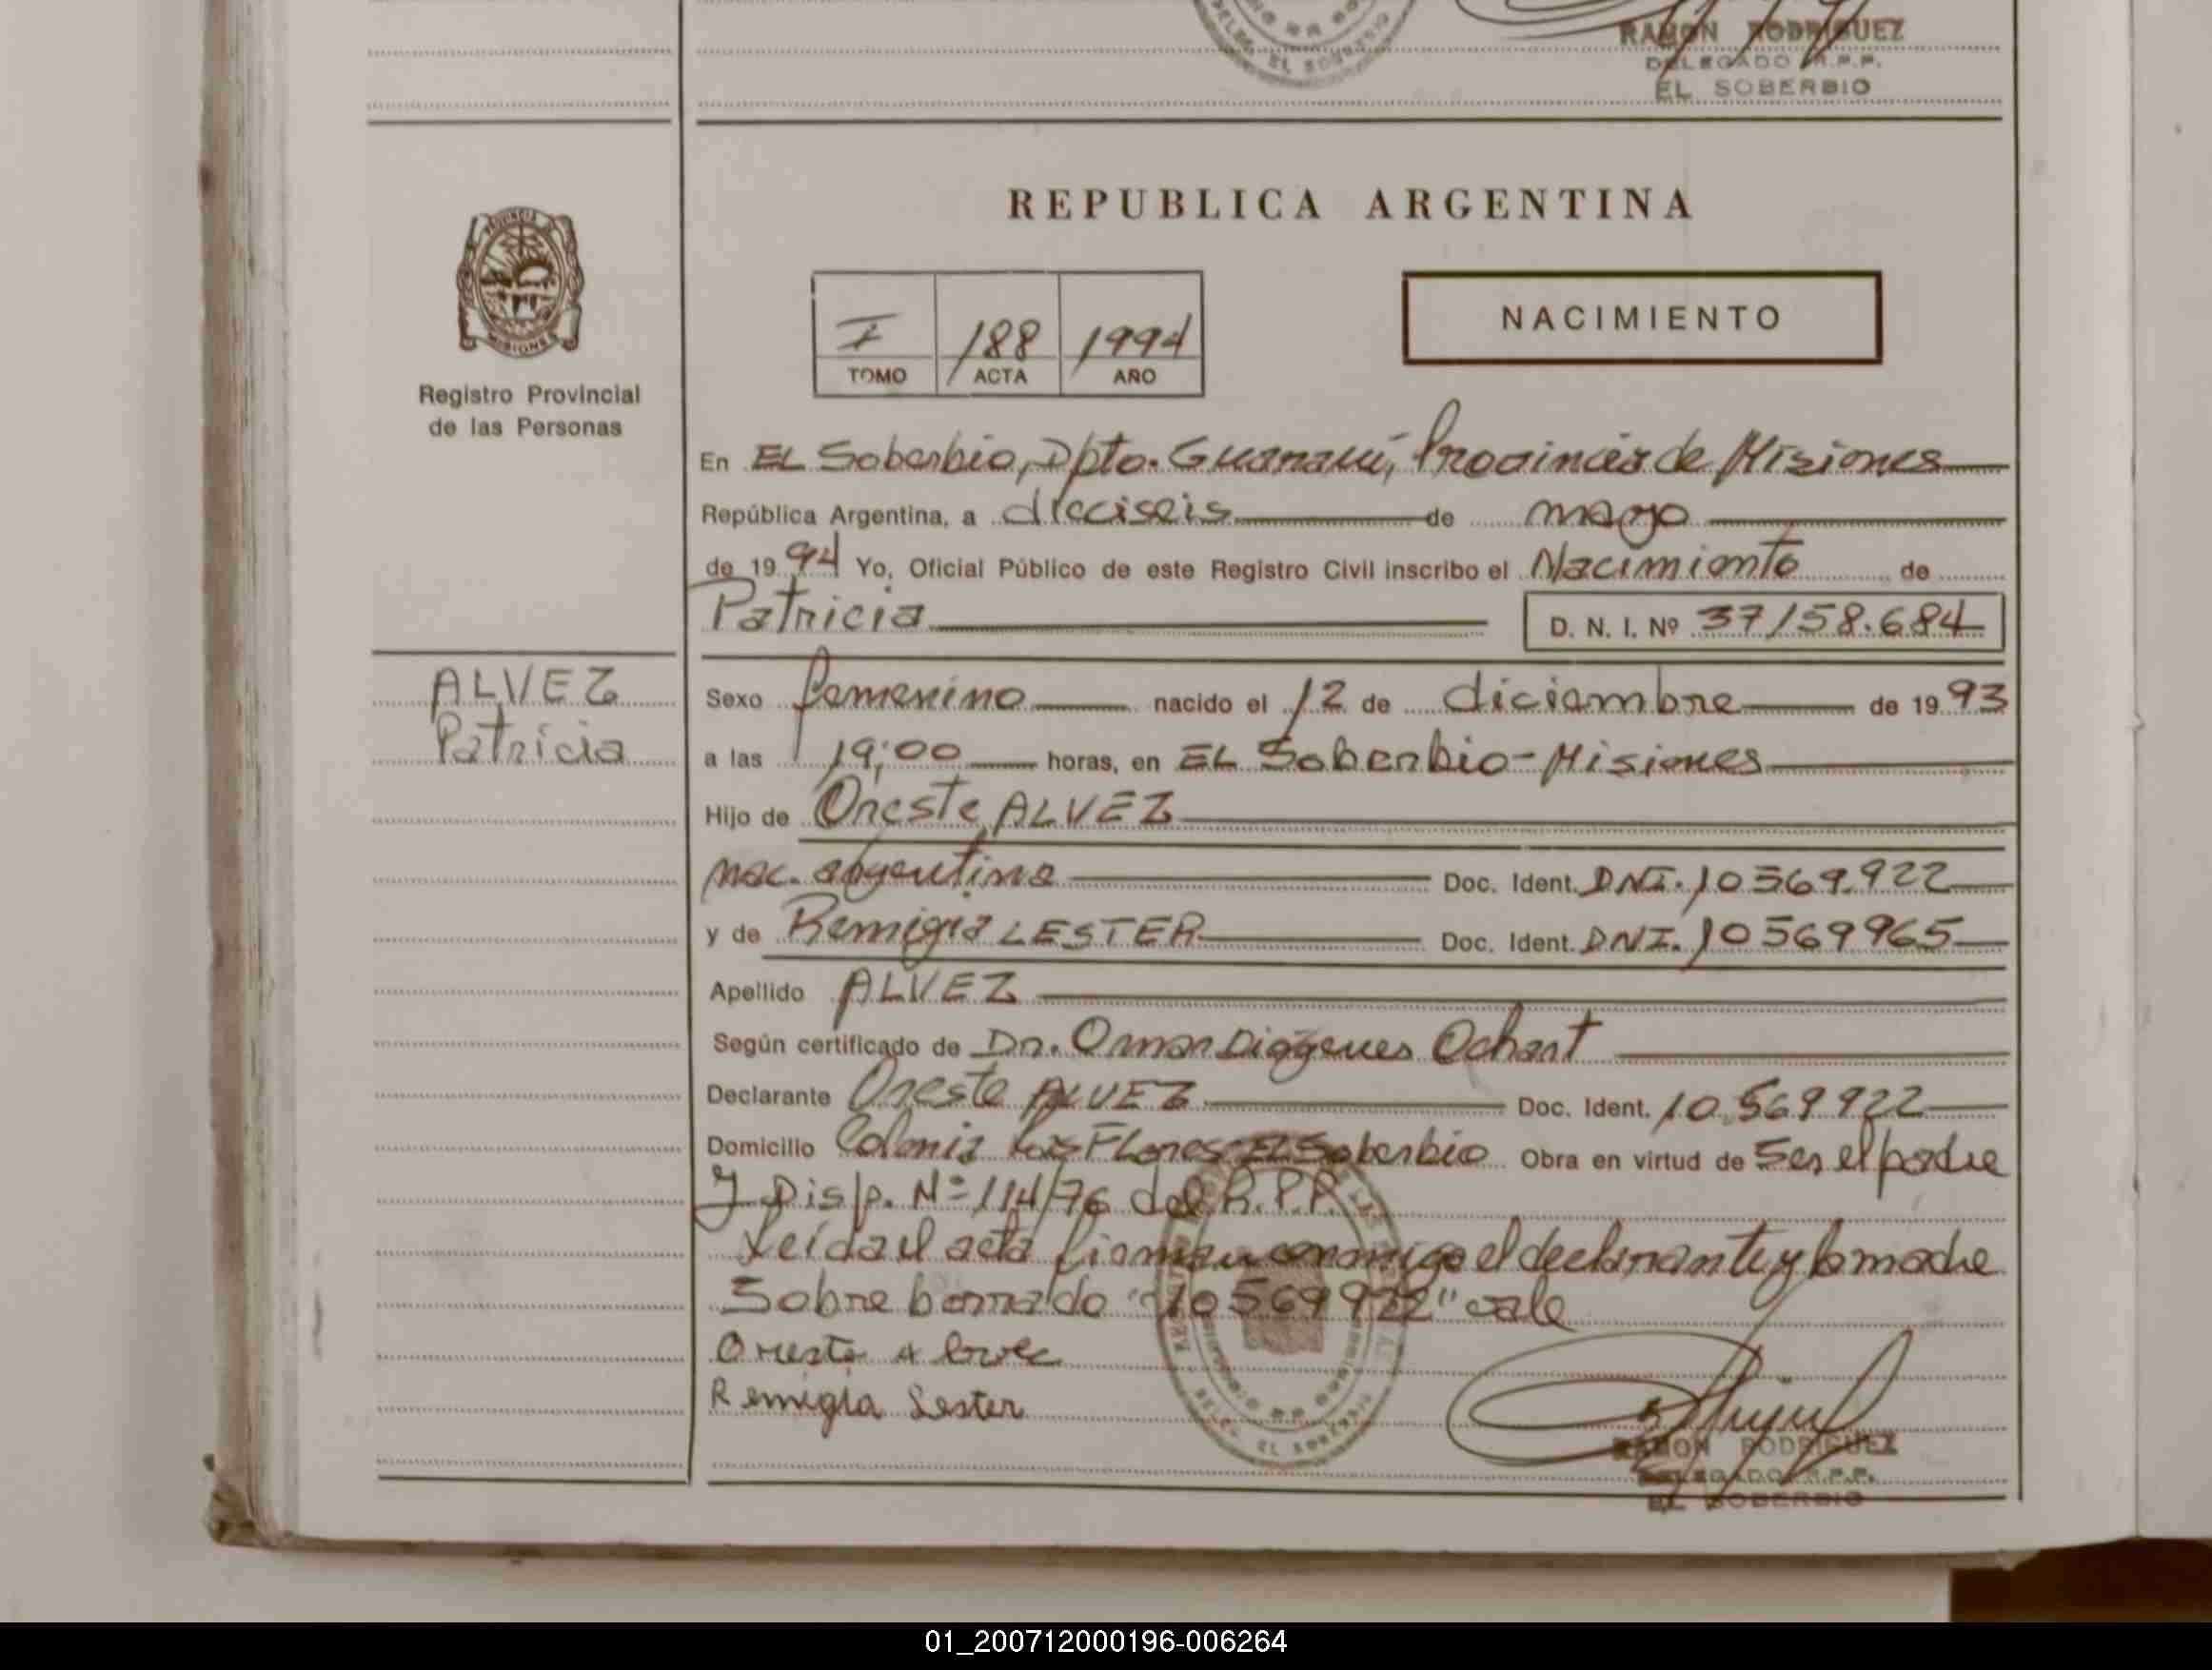 DELEG. EL SOBERBIO
RAMON RODRIGUEZ
DELEGADO R.P.P.
EL SOBERBIO
REPUBLICA ARGENTINA
PROVINCIA
MISIONES
Registro Provincial
de las Personas
I 188 1994
TOMO ACTA AÑO
NACIMIENTO
En EL Soberbio, Dpto. Guaraní, Provincia de Misiones
República Argentina, a dieciseis de mayo
de 19 94 Yo, Oficial Público de este Registro Civil inscribo el Nacimiento de
Patricia D. N. I. Nº 37158.684
ALVEZ
Patricia
Sexo femenino nacido el 12 de diciembre de 19 93
a las 19;00 horas, en EL Soberbio-Misiones
Hijo de Oreste ALVEZ
nac. argentina Doc. Ident. DNI. 10569.922
y de Remigia LESTER Doc. Ident. DNI. 10569965
Apellido ALVEZ
Según certificado de Dr. Omar Diógenes Ochart
Declarante Oreste ALVEZ Doc. Ident. 10.569922
Domicilio Colonia Las Flores-El Soberbio Obra en virtud de Ser el padre
y Disp. Nº 114/76 del R.P.P.
Leída el acta firman conmigo el declarante y la madre
Sobre borrado "10569922" vale
Remigia Lester
DELEG. EL SOBERBIO
RAMON RODRIGUEZ
DELEGADO R.P.P.
EL SOBERBIO
01_200712000196-006264